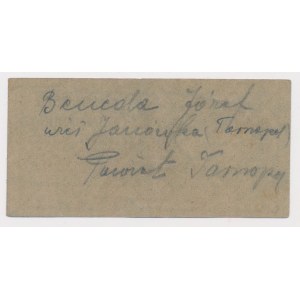 Beneda Józef
wieś Janówka (Tarnopol)
Powiat Tarnopol